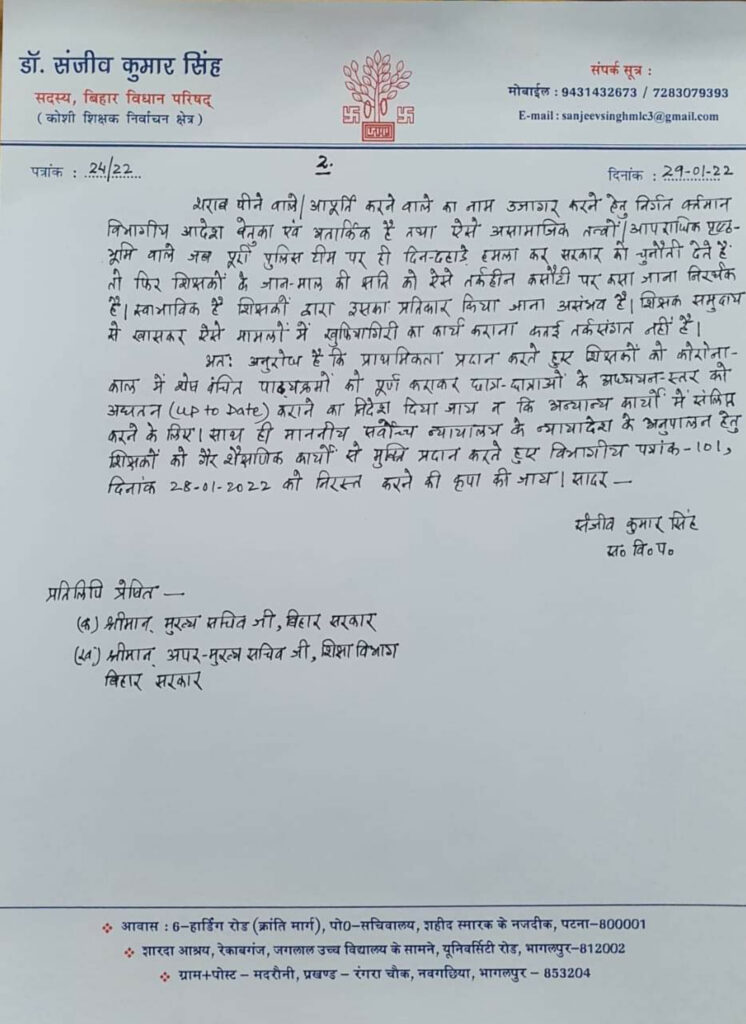 डॉ. संजीव कुमार सिंह
सदस्य, बिहार विधान परिषद्
( कोशी शिक्षक निर्वाचन क्षेत्र )
संपर्क सूत्र :
मोबाईल : 9431432673 / 7283079393
E-mail : sanjeevsinghmlc3@gmail.com
पत्रांक : 24/22
2.
दिनांक : 29-01-22
शराब पीने वाले/आपूर्ति करने वाले का नाम उजागर करने हेतु निर्गत वर्तमान
विभागीय आदेश बेतुका एवं अतार्किक है तथा ऐसे असामाजिक तत्वों/आपराधिक पृष्ठ-
भूमि वाले जब पूरी पुलिस टीम पर ही दिन-दहाड़े हमला कर सरकार को चुनौती देते हैं
तो फिर शिक्षकों के जान-माल की क्षति को ऐसे तर्कहीन कसौटी पर कसा जाना निरर्थक
है। स्वाभाविक है शिक्षकों द्वारा इसका प्रतिकार किया जाना असंभव है। शिक्षक समुदाय
से खासकर ऐसे मामलों में खुफियागिरी का कार्य कराना कतई तर्कसंगत नहीं है।
अतः अनुरोध है कि प्राथमिकता प्रदान करते हुए शिक्षकों को कोरोना-
काल में शेष वंचित पाठ्यक्रमों को पूर्ण कराकर छात्र-छात्राओं के अध्ययन-स्तर को
अद्यतन (UP to Date) कराने का निदेश दिया जाय न कि अन्यान्य कार्यों में संलिप्त
करने के लिए। साथ ही माननीय सर्वोच्च न्यायालय के न्यायादेश के अनुपालन हेतु
शिक्षकों को गैर शैक्षणिक कार्यों से मुक्ति प्रदान करते हुए विभागीय पत्रांक-101,
दिनांक 28-01-2022 को निरस्त करने की कृपा की जाय। सादर —
संजीव कुमार सिंह
स० वि० प०
प्रतिलिपि प्रेषित —
(क) श्रीमान् मुख्य सचिव जी, बिहार सरकार
(ख) श्रीमान् अपर-मुख्य सचिव जी, शिक्षा विभाग
बिहार सरकार
आवास : 6-हार्डिंग रोड (क्रांति मार्ग), पो0-सचिवालय, शहीद स्मारक के नजदीक, पटना-800001
शारदा आश्रय, रेकाबगंज, जगलाल उच्च विद्यालय के सामने, यूनिवर्सिटी रोड, भागलपुर-812002
ग्राम+पोस्ट - मदरौनी, प्रखण्ड - रंगरा चौक, नवगछिया, भागलपुर - 853204